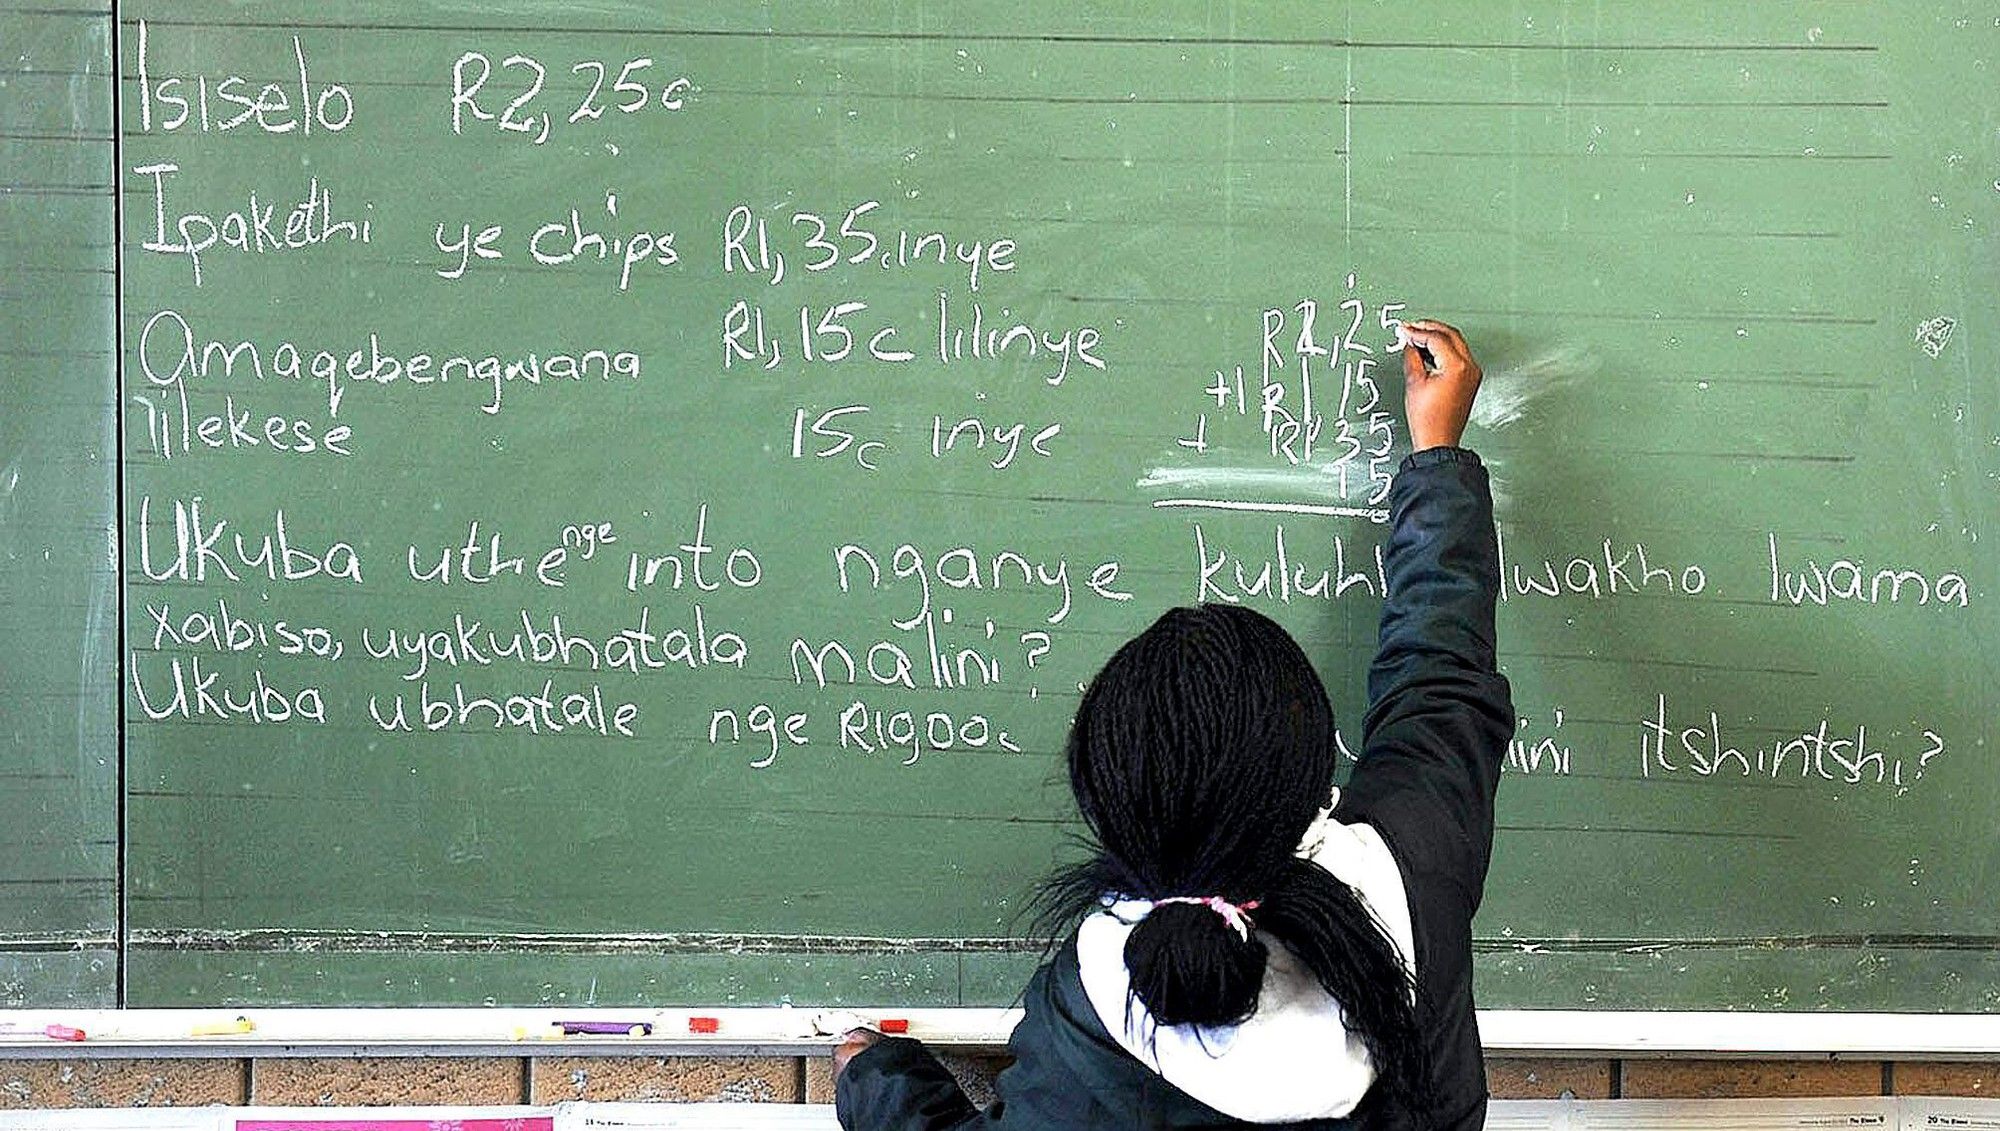 Isiselo R2,25c
Ipakethi ye chips R1,35c inye
Amaqebengwana R1,15c lilinye
iilekese 15c inye
R2,25
+1 R1 15
+ R1 35
15
Ukuba uthenge into nganye lwakho lwama
xabiso, uyakubhatala malini?
Ukuba ubhatale nge R1900c itshintshi?